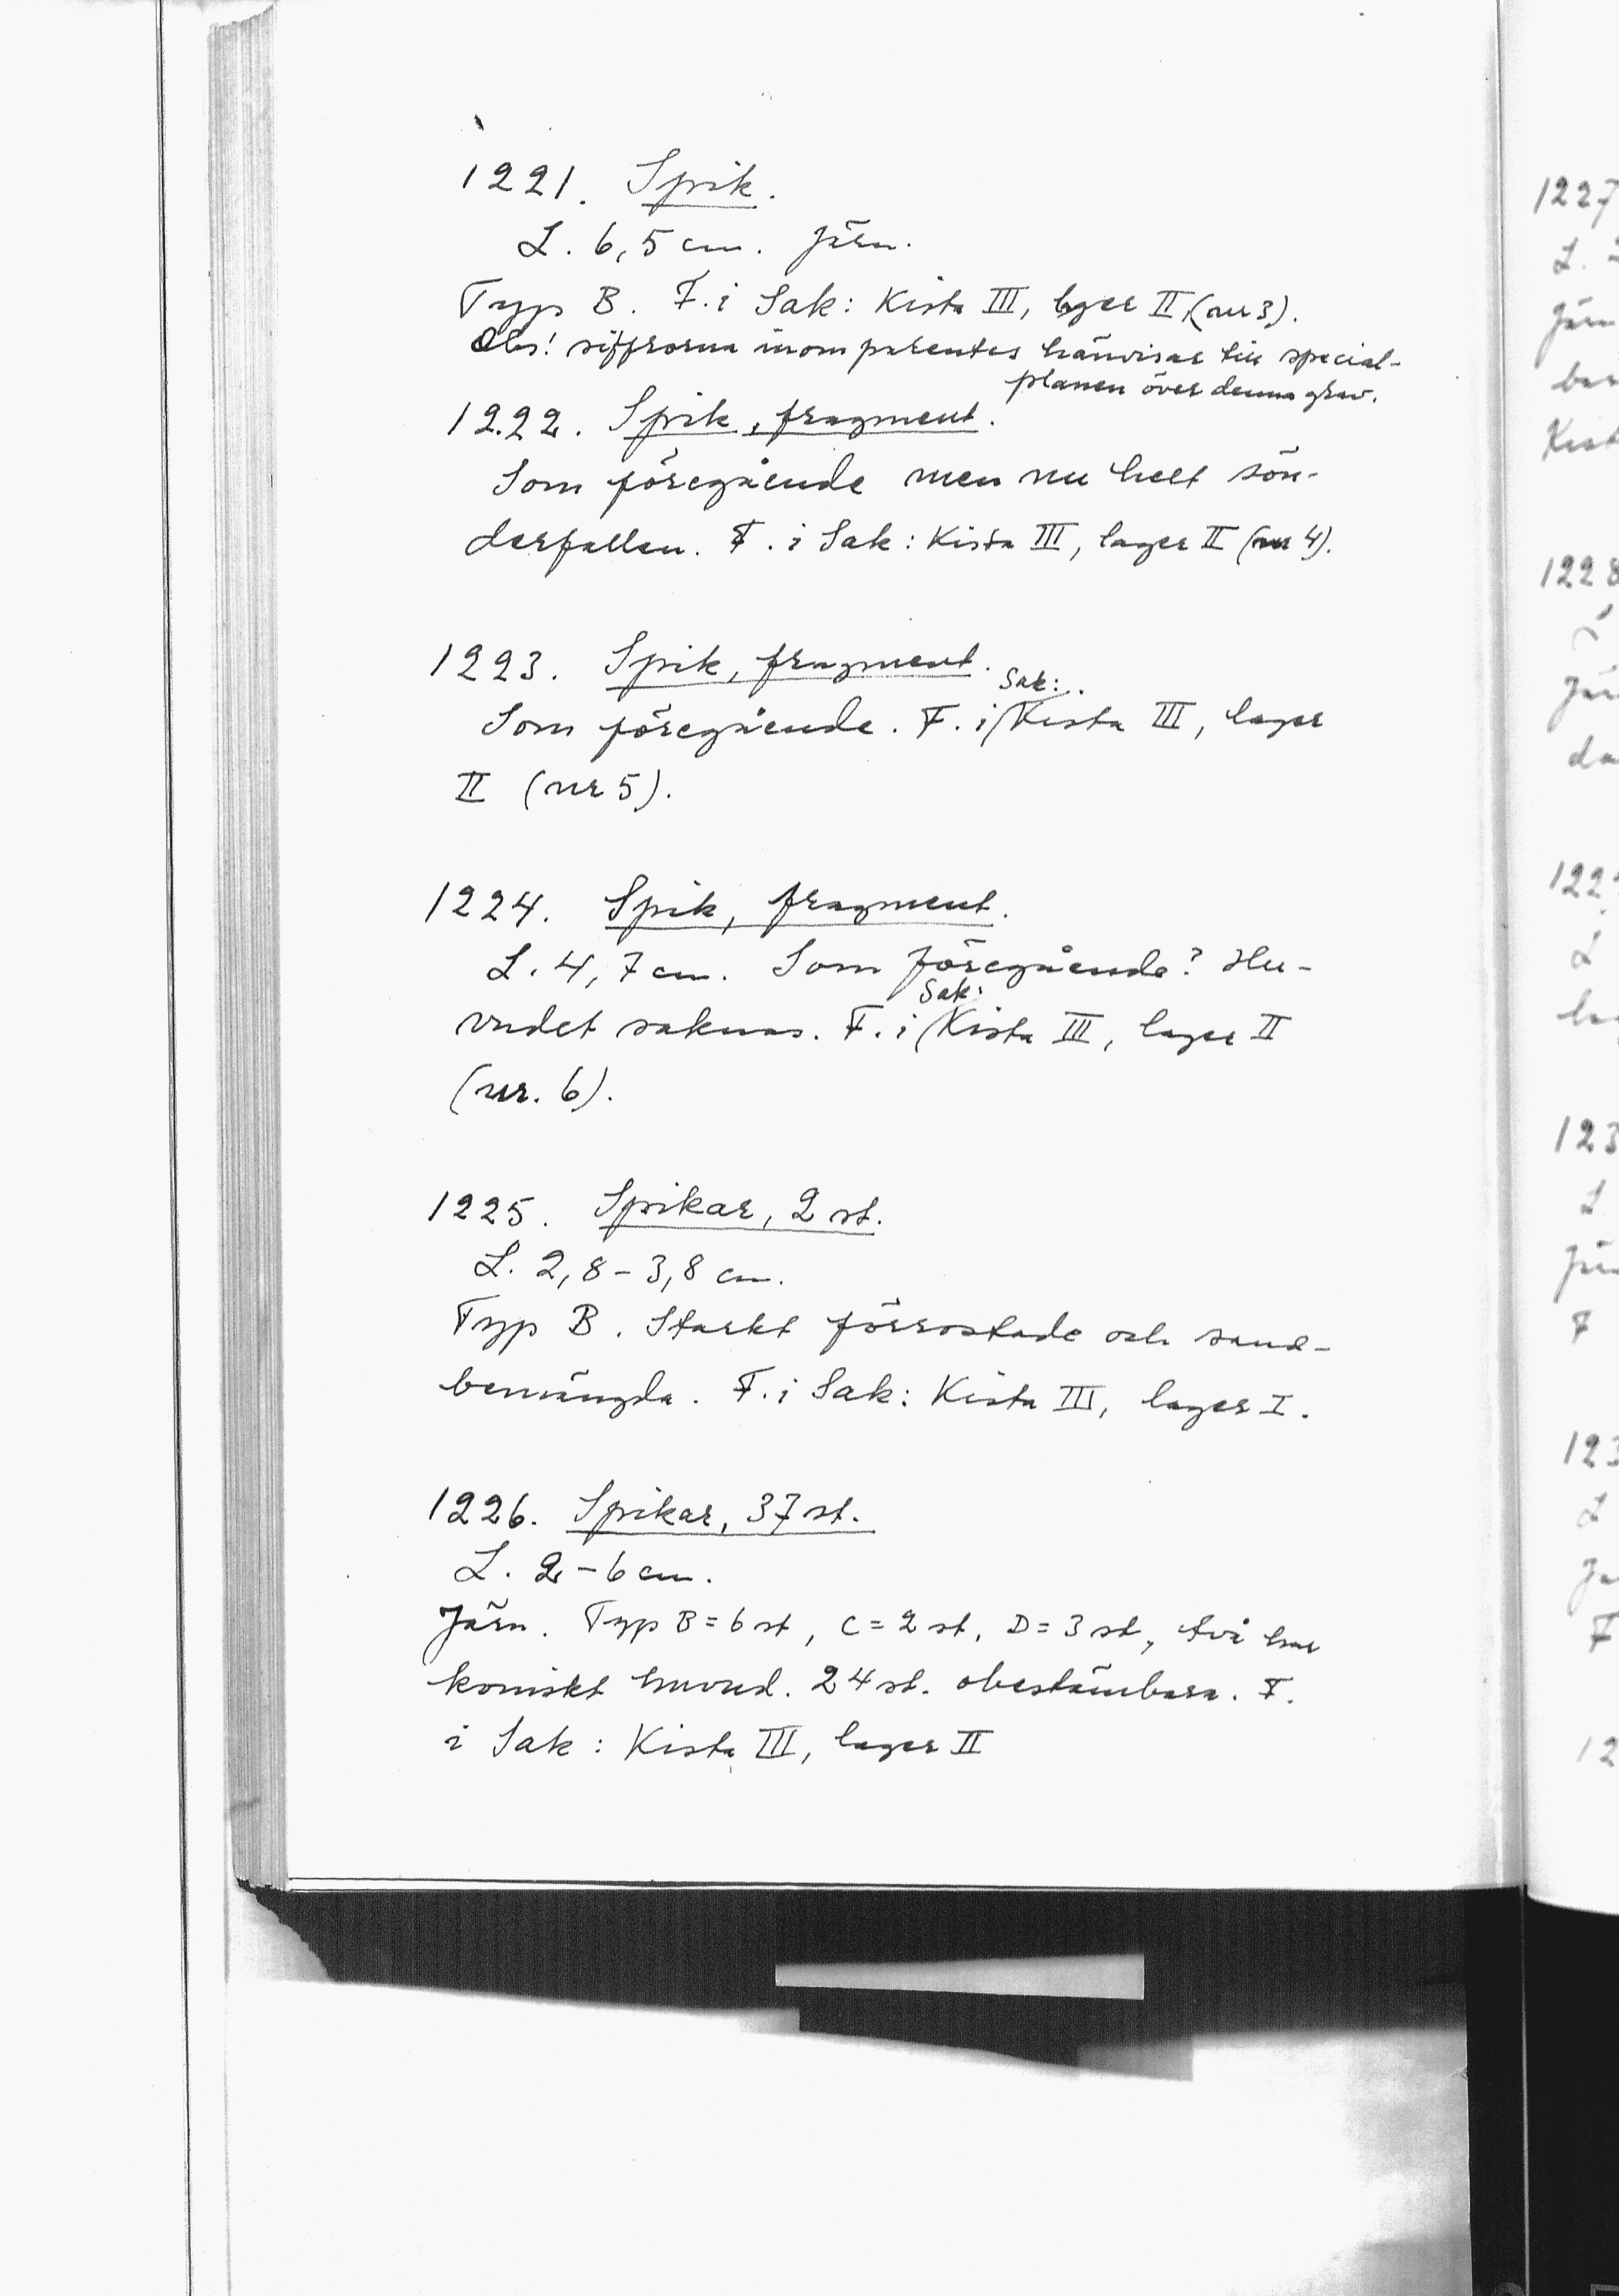 1221. Spik.
L. 6,5 cm. Järn.
Typ B. F. i Sak: Kista III, lager II, (nr 3).
Obs! siffrorna inom parentes hänvisar till special-
planen över denna grav.
1222. Spik, fragment.
Som föregående men nu helt sön-
derfallen. F. i Sak: Kista III, lager II (nr 4).
1223. Spik, fragment.
Sak:
Som föregående. F. i Kista III, lager
II (nr 5).
1224. Spik, fragment.
L. 4,7 cm. Som föregående? Hu-
Sak:
vudet saknas. F. i Kista III, lager II
(nr. 6).
1225. Spikar, 2 st.
L. 2,8 - 3,8 cm.
Typ B. Starkt förrostade och sand-
bemängda. F. i Sak: Kista III, lager I.
1226. Spikar, 37 st.
L. 2 - 6 cm.
Järn. Typ B = 6 st, C = 2 st, D = 3 st, två har
koniskt huvud. 24 st. obestämbara. F.
i Sak: Kista III, lager II
1227
L.
Järn
Kist
1228
da
L
L
F
L
F